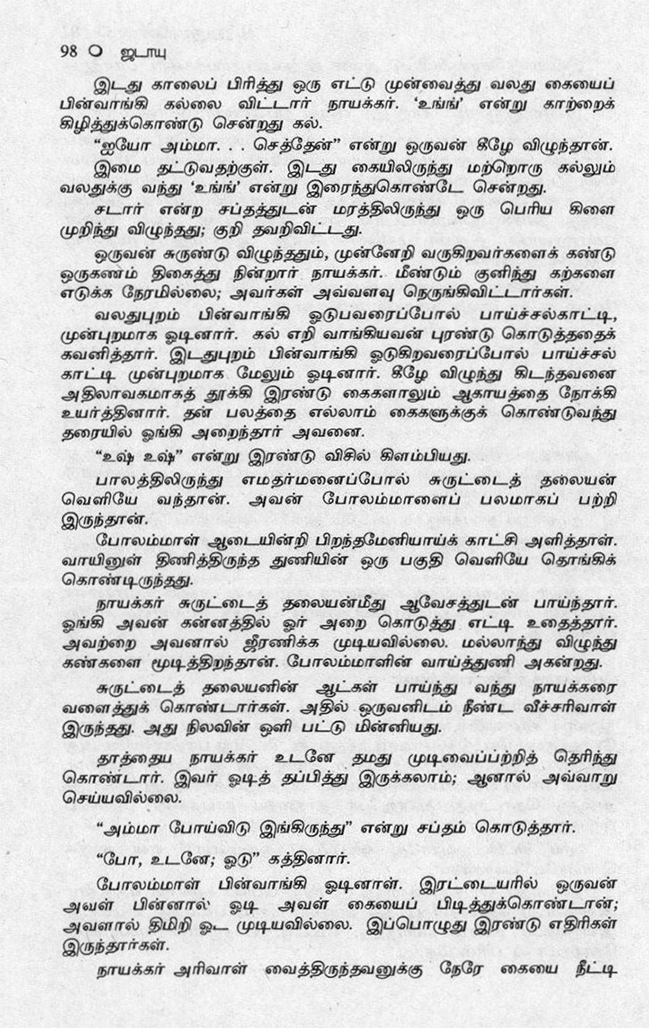 98 O ஜடாயு
இடது காலைப் பிரித்து ஒரு எட்டு முன்வைத்து வலது கையைப்
பின்வாங்கி கல்லை விட்டார் நாயக்கர். ‘உங்ங்’ என்று காற்றைக்
கிழித்துக்கொண்டு சென்றது கல்.
“ஐயோ அம்மா. . . செத்தேன்” என்று ஒருவன் கீழே விழுந்தான்.
இமை தட்டுவதற்குள். இடது கையிலிருந்து மற்றொரு கல்லும்
வலதுக்கு வந்து ‘உங்ங்’ என்று இரைந்துகொண்டே சென்றது.
சடார் என்ற சப்தத்துடன் மரத்திலிருந்து ஒரு பெரிய கிளை
முறிந்து விழுந்தது; குறி தவறிவிட்டது.
ஒருவன் சுருண்டு விழுந்ததும், முன்னேறி வருகிறவர்களைக் கண்டு
ஒருகணம் திகைத்து நின்றார் நாயக்கர். மீண்டும் குனிந்து கற்களை
எடுக்க நேரமில்லை; அவர்கள் அவ்வளவு நெருங்கிவிட்டார்கள்.
வலதுபுறம் பின்வாங்கி ஓடுபவரைப்போல் பாய்ச்சல்காட்டி,
முன்புறமாக ஓடினார். கல் எறி வாங்கியவன் புரண்டு கொடுத்ததைக்
கவனித்தார். இடதுபுறம் பின்வாங்கி ஓடுகிறவரைப்போல் பாய்ச்சல்
காட்டி முன்புறமாக மேலும் ஓடினார். கீழே விழுந்து கிடந்தவனை
அதிலாவகமாகத் தூக்கி இரண்டு கைகளாலும் ஆகாயத்தை நோக்கி
உயர்த்தினார். தன் பலத்தை எல்லாம் கைகளுக்குக் கொண்டுவந்து
தரையில் ஓங்கி அறைந்தார் அவனை.
“உஷ் உஷ்” என்று இரண்டு விசில் கிளம்பியது.
பாலத்திலிருந்து எமதர்மனைப்போல் சுருட்டைத் தலையன்
வெளியே வந்தான். அவன் போலம்மாளைப் பலமாகப் பற்றி
இருந்தான்.
போலம்மாள் ஆடையின்றி பிறந்தமேனியாய்க் காட்சி அளித்தாள்.
வாயினுள் திணித்திருந்த துணியின் ஒரு பகுதி வெளியே தொங்கிக்
கொண்டிருந்தது.
நாயக்கர் சுருட்டைத் தலையன்மீது ஆவேசத்துடன் பாய்ந்தார்.
ஓங்கி அவன் கன்னத்தில் ஓர் அறை கொடுத்து எட்டி உதைத்தார்.
அவற்றை அவனால் ஜீரணிக்க முடியவில்லை. மல்லாந்து விழுந்து
கண்களை மூடித்திறந்தான். போலம்மாளின் வாய்த்துணி அகன்றது.
சுருட்டைத் தலையனின் ஆட்கள் பாய்ந்து வந்து நாயக்கரை
வளைத்துக் கொண்டார்கள். அதில் ஒருவனிடம் நீண்ட வீச்சரிவாள்
இருந்தது. அது நிலவின் ஒளி பட்டு மின்னியது.
தாத்தைய நாயக்கர் உடனே தமது முடிவைப்பற்றித் தெரிந்து
கொண்டார். இவர் ஓடித் தப்பித்து இருக்கலாம்; ஆனால் அவ்வாறு
செய்யவில்லை.
“அம்மா போய்விடு இங்கிருந்து” என்று சப்தம் கொடுத்தார்.
“போ, உடனே; ஓடு” கத்தினார்.
போலம்மாள் பின்வாங்கி ஓடினாள். இரட்டையரில் ஒருவன்
அவள் பின்னால் ஓடி அவள் கையைப் பிடித்துக்கொண்டான்;
அவளால் திமிறி ஓட முடியவில்லை. இப்பொழுது இரண்டு எதிரிகள்
இருந்தார்கள்.
நாயக்கர் அரிவாள் வைத்திருந்தவனுக்கு நேரே கையை நீட்டி